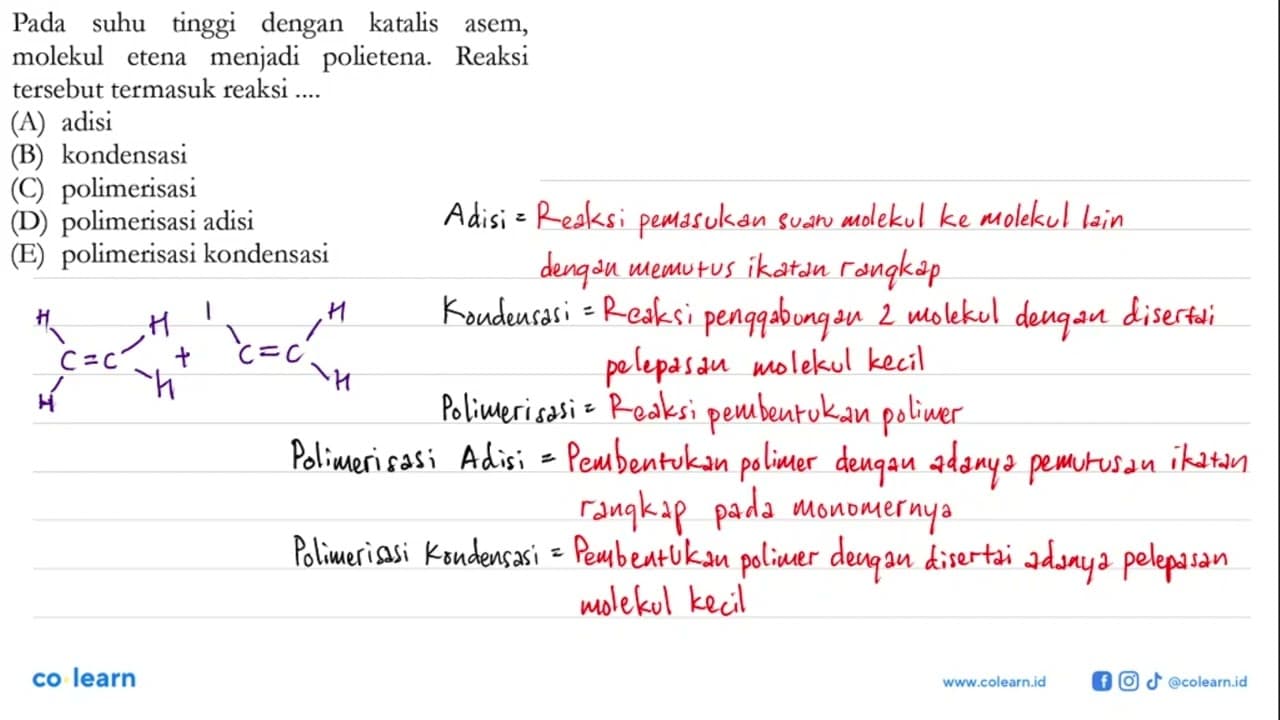 Pada suhu tinggi dengan katalis asem,
molekul etena menjadi polietena. Reaksi
tersebut termasuk reaksi ....
(A) adisi
(B) kondensasi
(C) polimerisasi
(D) polimerisasi adisi
(E) polimerisasi kondensasi
Adisi = Reaksi pemasukan suatu molekul ke molekul lain
dengan memutus ikatan rangkap
Kondensasi = Reaksi penggabungan 2 molekul dengan disertai
pelepasan molekul kecil
Polimerisasi = Reaksi pembentukan polimer
Polimerisasi Adisi = Pembentukan polimer dengan adanya pemutusan ikatan
rangkap pada monomernya
Polimerisasi Kondensasi = Pembentukan polimer dengan disertai adanya pelepasan
molekul kecil
H H H
C=C + C=C
H H H
co learn
www.colearn.id @colearn.id